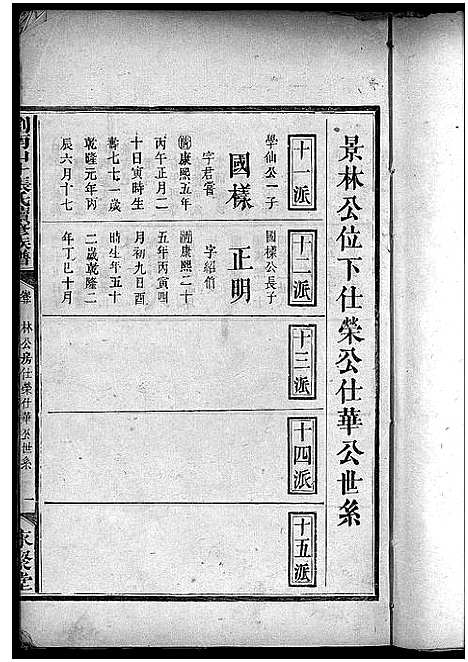 景林公位下仕榮公仕華公世系
十一派
學仙公一子
國樣
字君
清康熙五年
丙午正月二
十日寅時生
七七一歲
乾隆元年丙
辰六月十七
十二派
國樣公長子
正明
字紹
清康熙二十
五年丙寅四
月初九日酉
時生年五十
二歲乾隆二
年丁巳十月
十三派
十四派
十五派
張氏
林公房仕榮仕華公世系
一
永聚堂